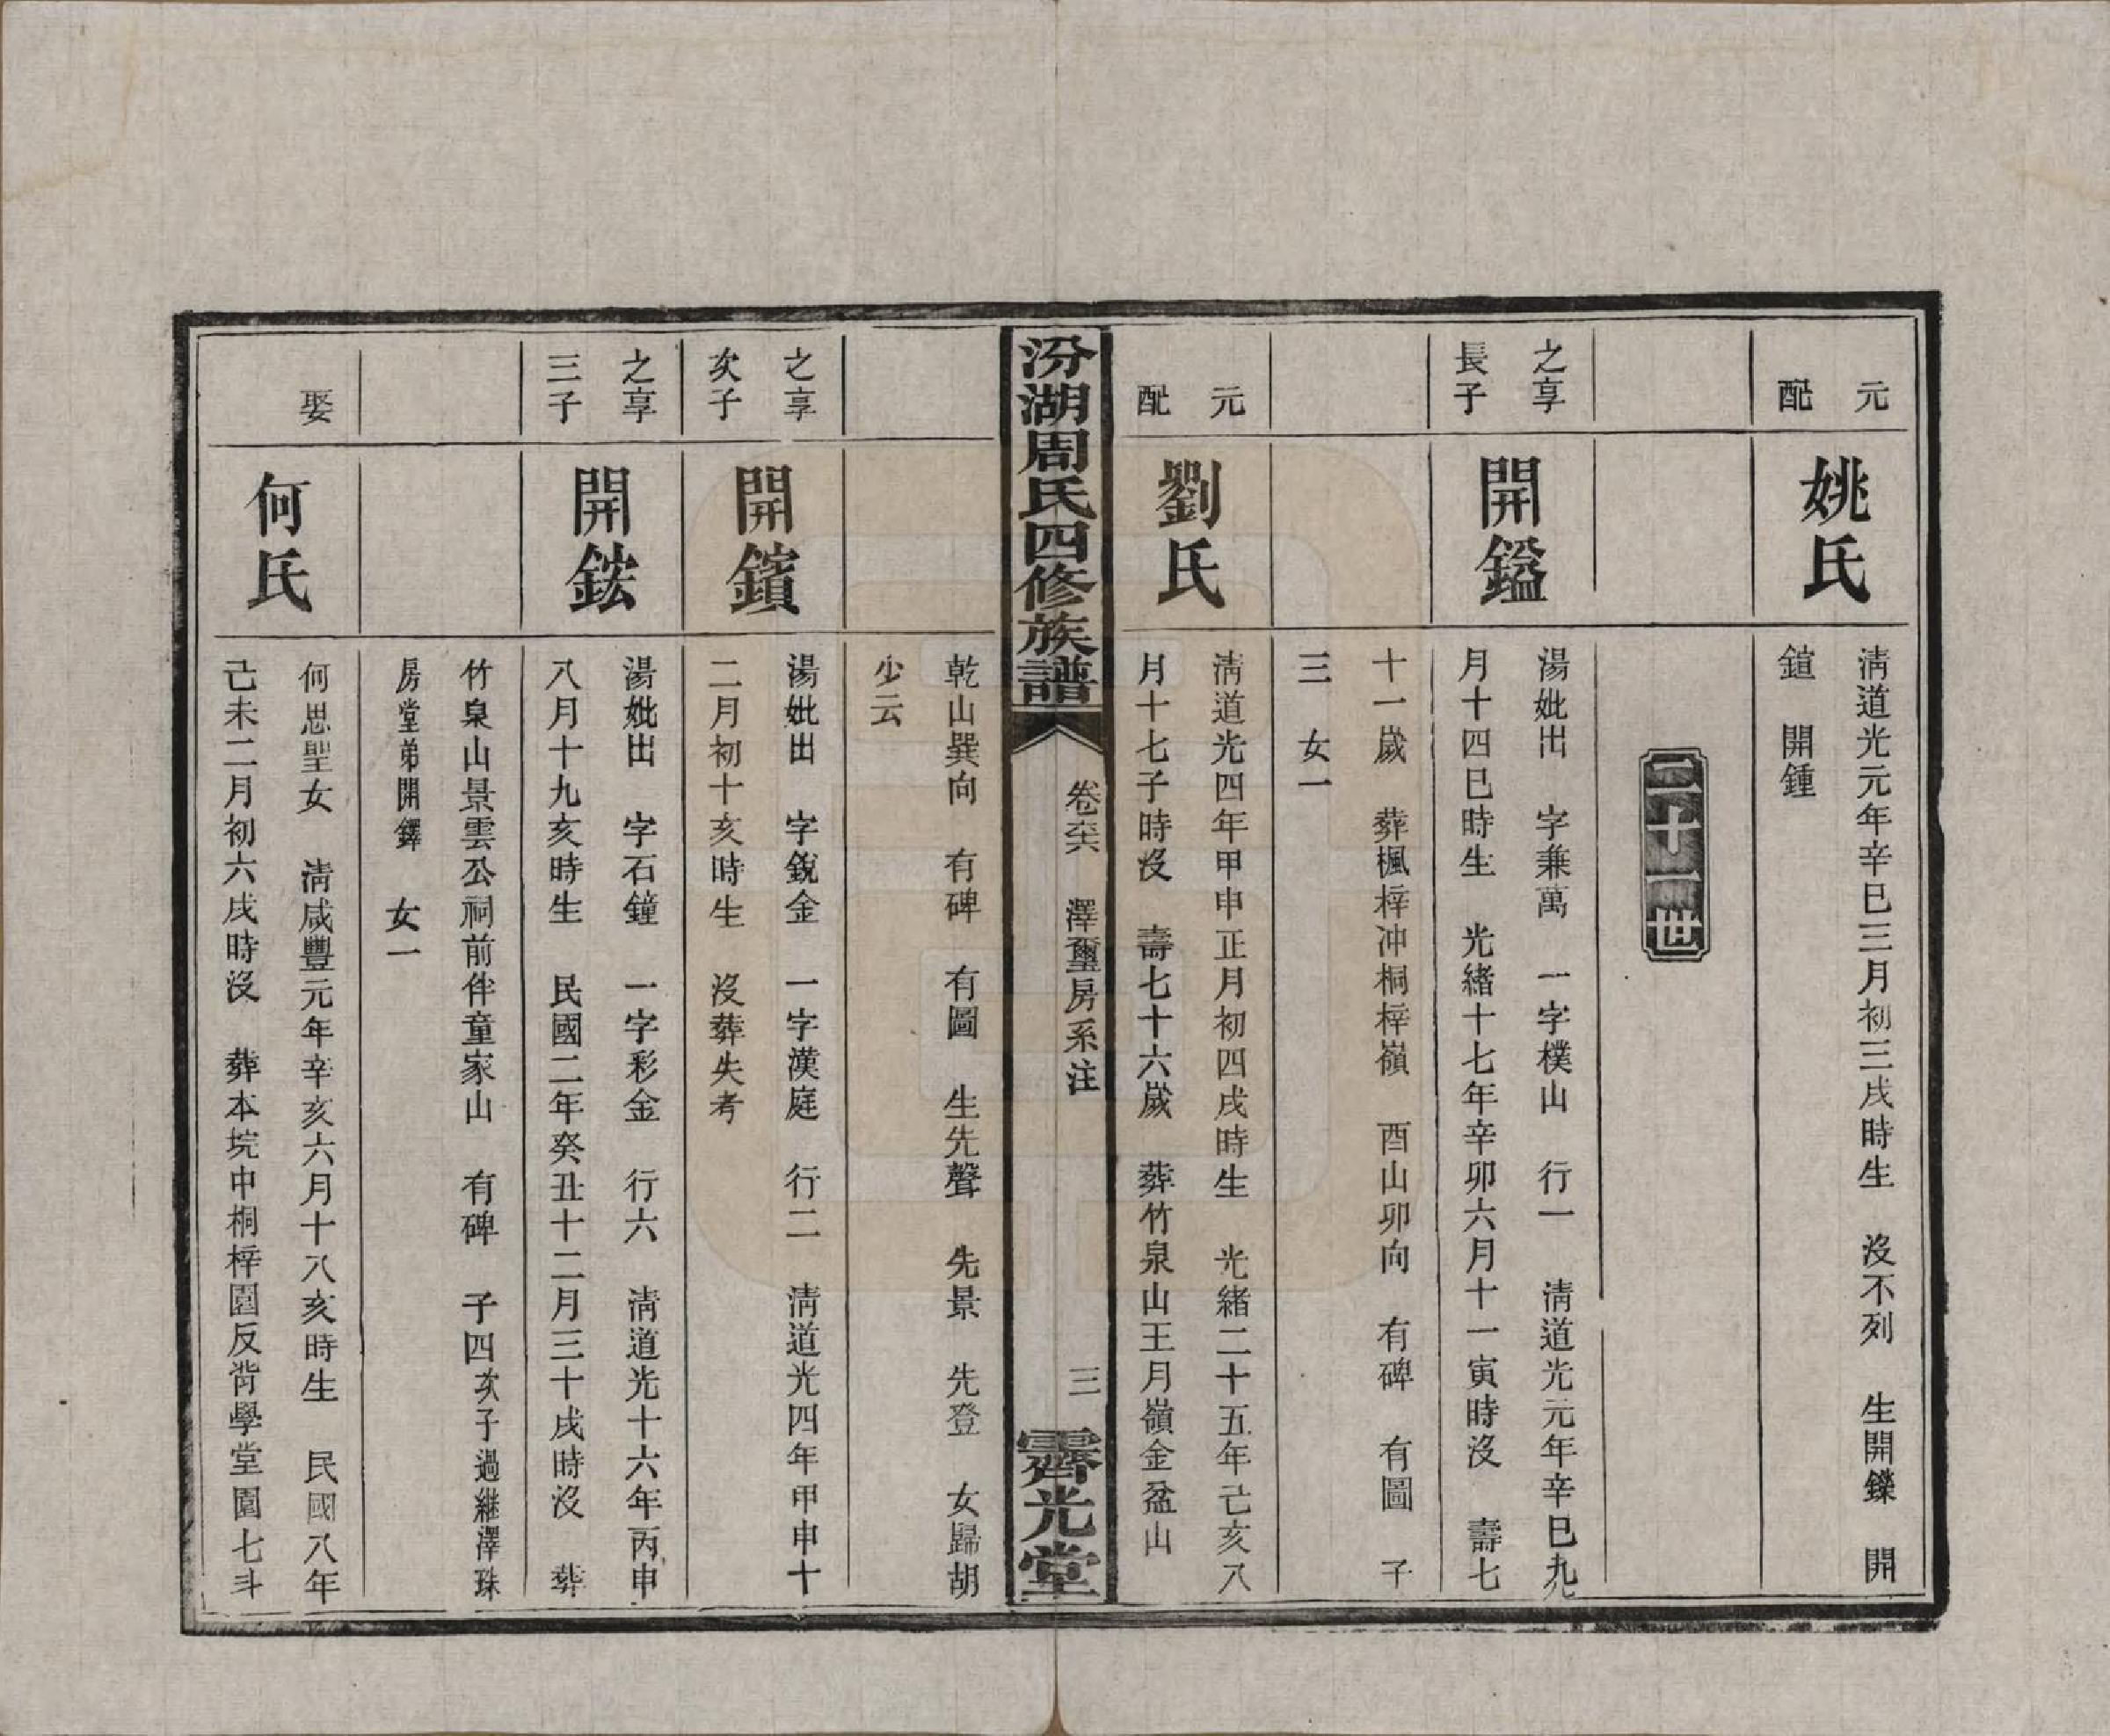 元配
姚氏
淸道光元年辛巳三月初三戌時生　沒不列　生開鑠　開
鍹　開鍾
二十二世
之享
長子
開鎰
湯妣出　字兼萬　一字樸山　行一　淸道光元年辛巳九
月十四巳時生　光緒十七年辛卯六月十一寅時沒　壽七
十一歲　葬楓梓冲桐梓嶺　酉山卯向　有碑　有圖　子
三　女一
元配
劉氏
淸道光四年甲申正月初四戌時生　光緒二十五年己亥八
月十七子時沒　壽七十六歲　葬竹泉山王月嶺金盆山
汾湖周氏四修族譜
卷六六　澤璽房系注
三
霽光堂
乾山巽向　有碑　有圖　生先聲　先景　先登　女歸胡
少云
之享
次子
開鑌
湯妣出　字銳金　一字漢庭　行二　淸道光四年甲申十
二月初十亥時生　沒葬失考
之享
三子
開鋐
湯妣出　字石鐘　一字彩金　行六　淸道光十六年丙申
八月十九亥時生　民國二年癸丑十二月三十戌時沒　葬
竹泉山景雲公祠前伴童家山　有碑　子四次子過繼澤珠
房堂弟開鐸　女一
娶
何氏
何思聖女　淸咸豐元年辛亥六月十八亥時生　民國八年
己未二月初六戌時沒　葬本垸中桐梓園反背學堂園七斗